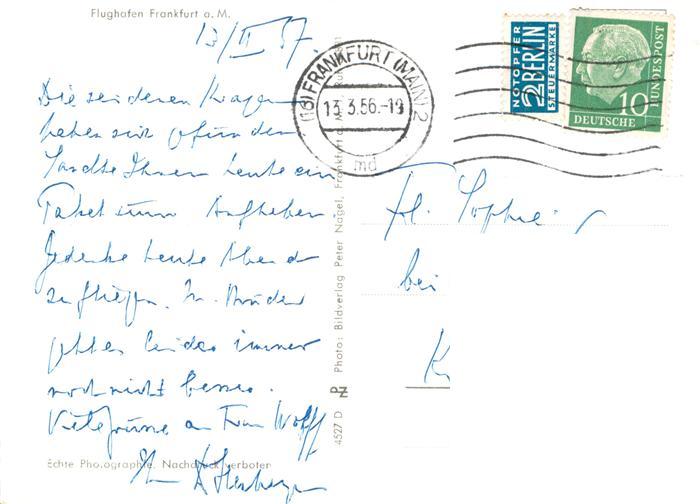 Flughafen Frankfurt a. M.
13/II 57.
Die seidenen Kragen
haben sich gefunden
Sandte Ihnen heute ein
Paket zum Aufheben.
Gedenke heute Abend
zu fliegen. In München
geht es leider immer
noch nicht besser.
Viele Grüsse an Frau Wolff
Ihr
Echte Photographie. Nachdruck verboten
4527 D PZ Photo: Bildverlag Peter Nagel, Frankfurt a. M.
(16) FRANKFURT (MAIN) 2
13.3.56.-19
md
NOTOPFER
2 BERLIN
STEUERMARKE
10
DEUTSCHE
BUNDESPOST
Frl. Sophie
bei
K